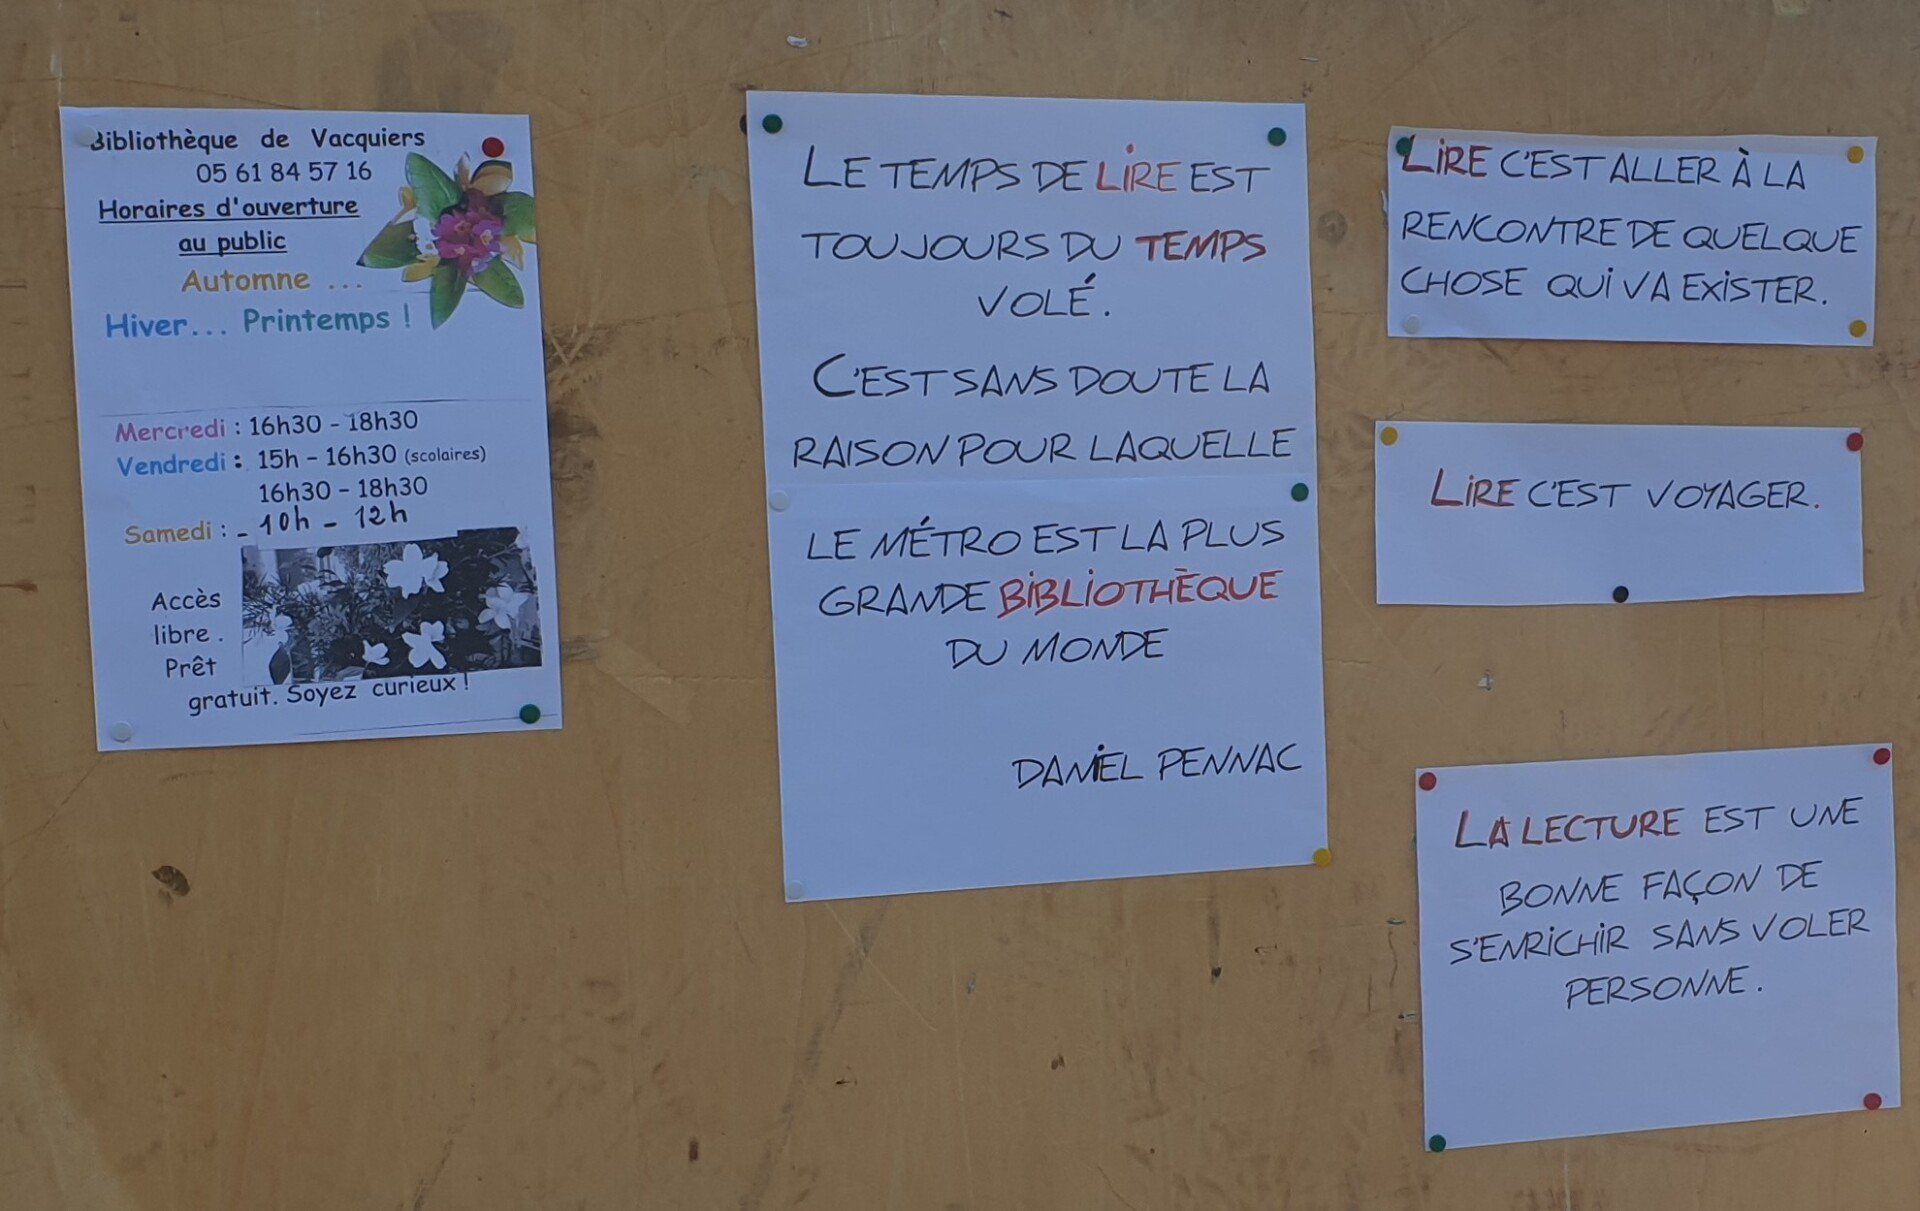 Bibliothèque de Vacquiers
05 61 84 57 16
Horaires d'ouverture
au public
Automne ...
Hiver... Printemps !
Mercredi : 16h30 - 18h30
Vendredi : 15h - 16h30 (scolaires)
16h30 - 18h30
Samedi : - 10h - 12h
Accès
libre.
Prêt
gratuit. Soyez curieux !
LE TEMPS DE LIRE EST
TOUJOURS DU TEMPS
VOLÉ.
C'EST SANS DOUTE LA
RAISON POUR LAQUELLE
LE MÉTRO EST LA PLUS
GRANDE BIBLIOTHÈQUE
DU MONDE
DANIEL PENNAC
LIRE C'EST ALLER À LA
RENCONTRE DE QUELQUE
CHOSE QUI VA EXISTER.
LIRE C'EST VOYAGER.
LA LECTURE EST UNE
BONNE FAÇON DE
S'ENRICHIR SANS VOLER
PERSONNE.